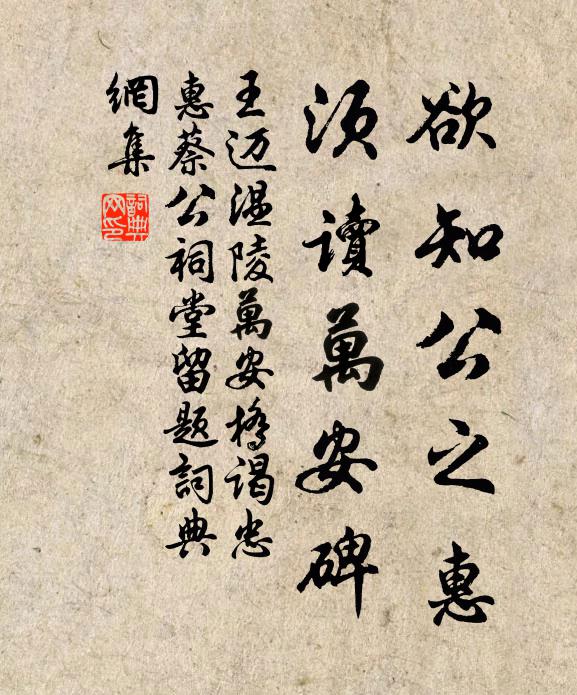 欲知公之惠
須讀萬安碑
王迈温陵萬安橋谒忠
惠蔡公祠堂留题詞典
網集
詞典
网印